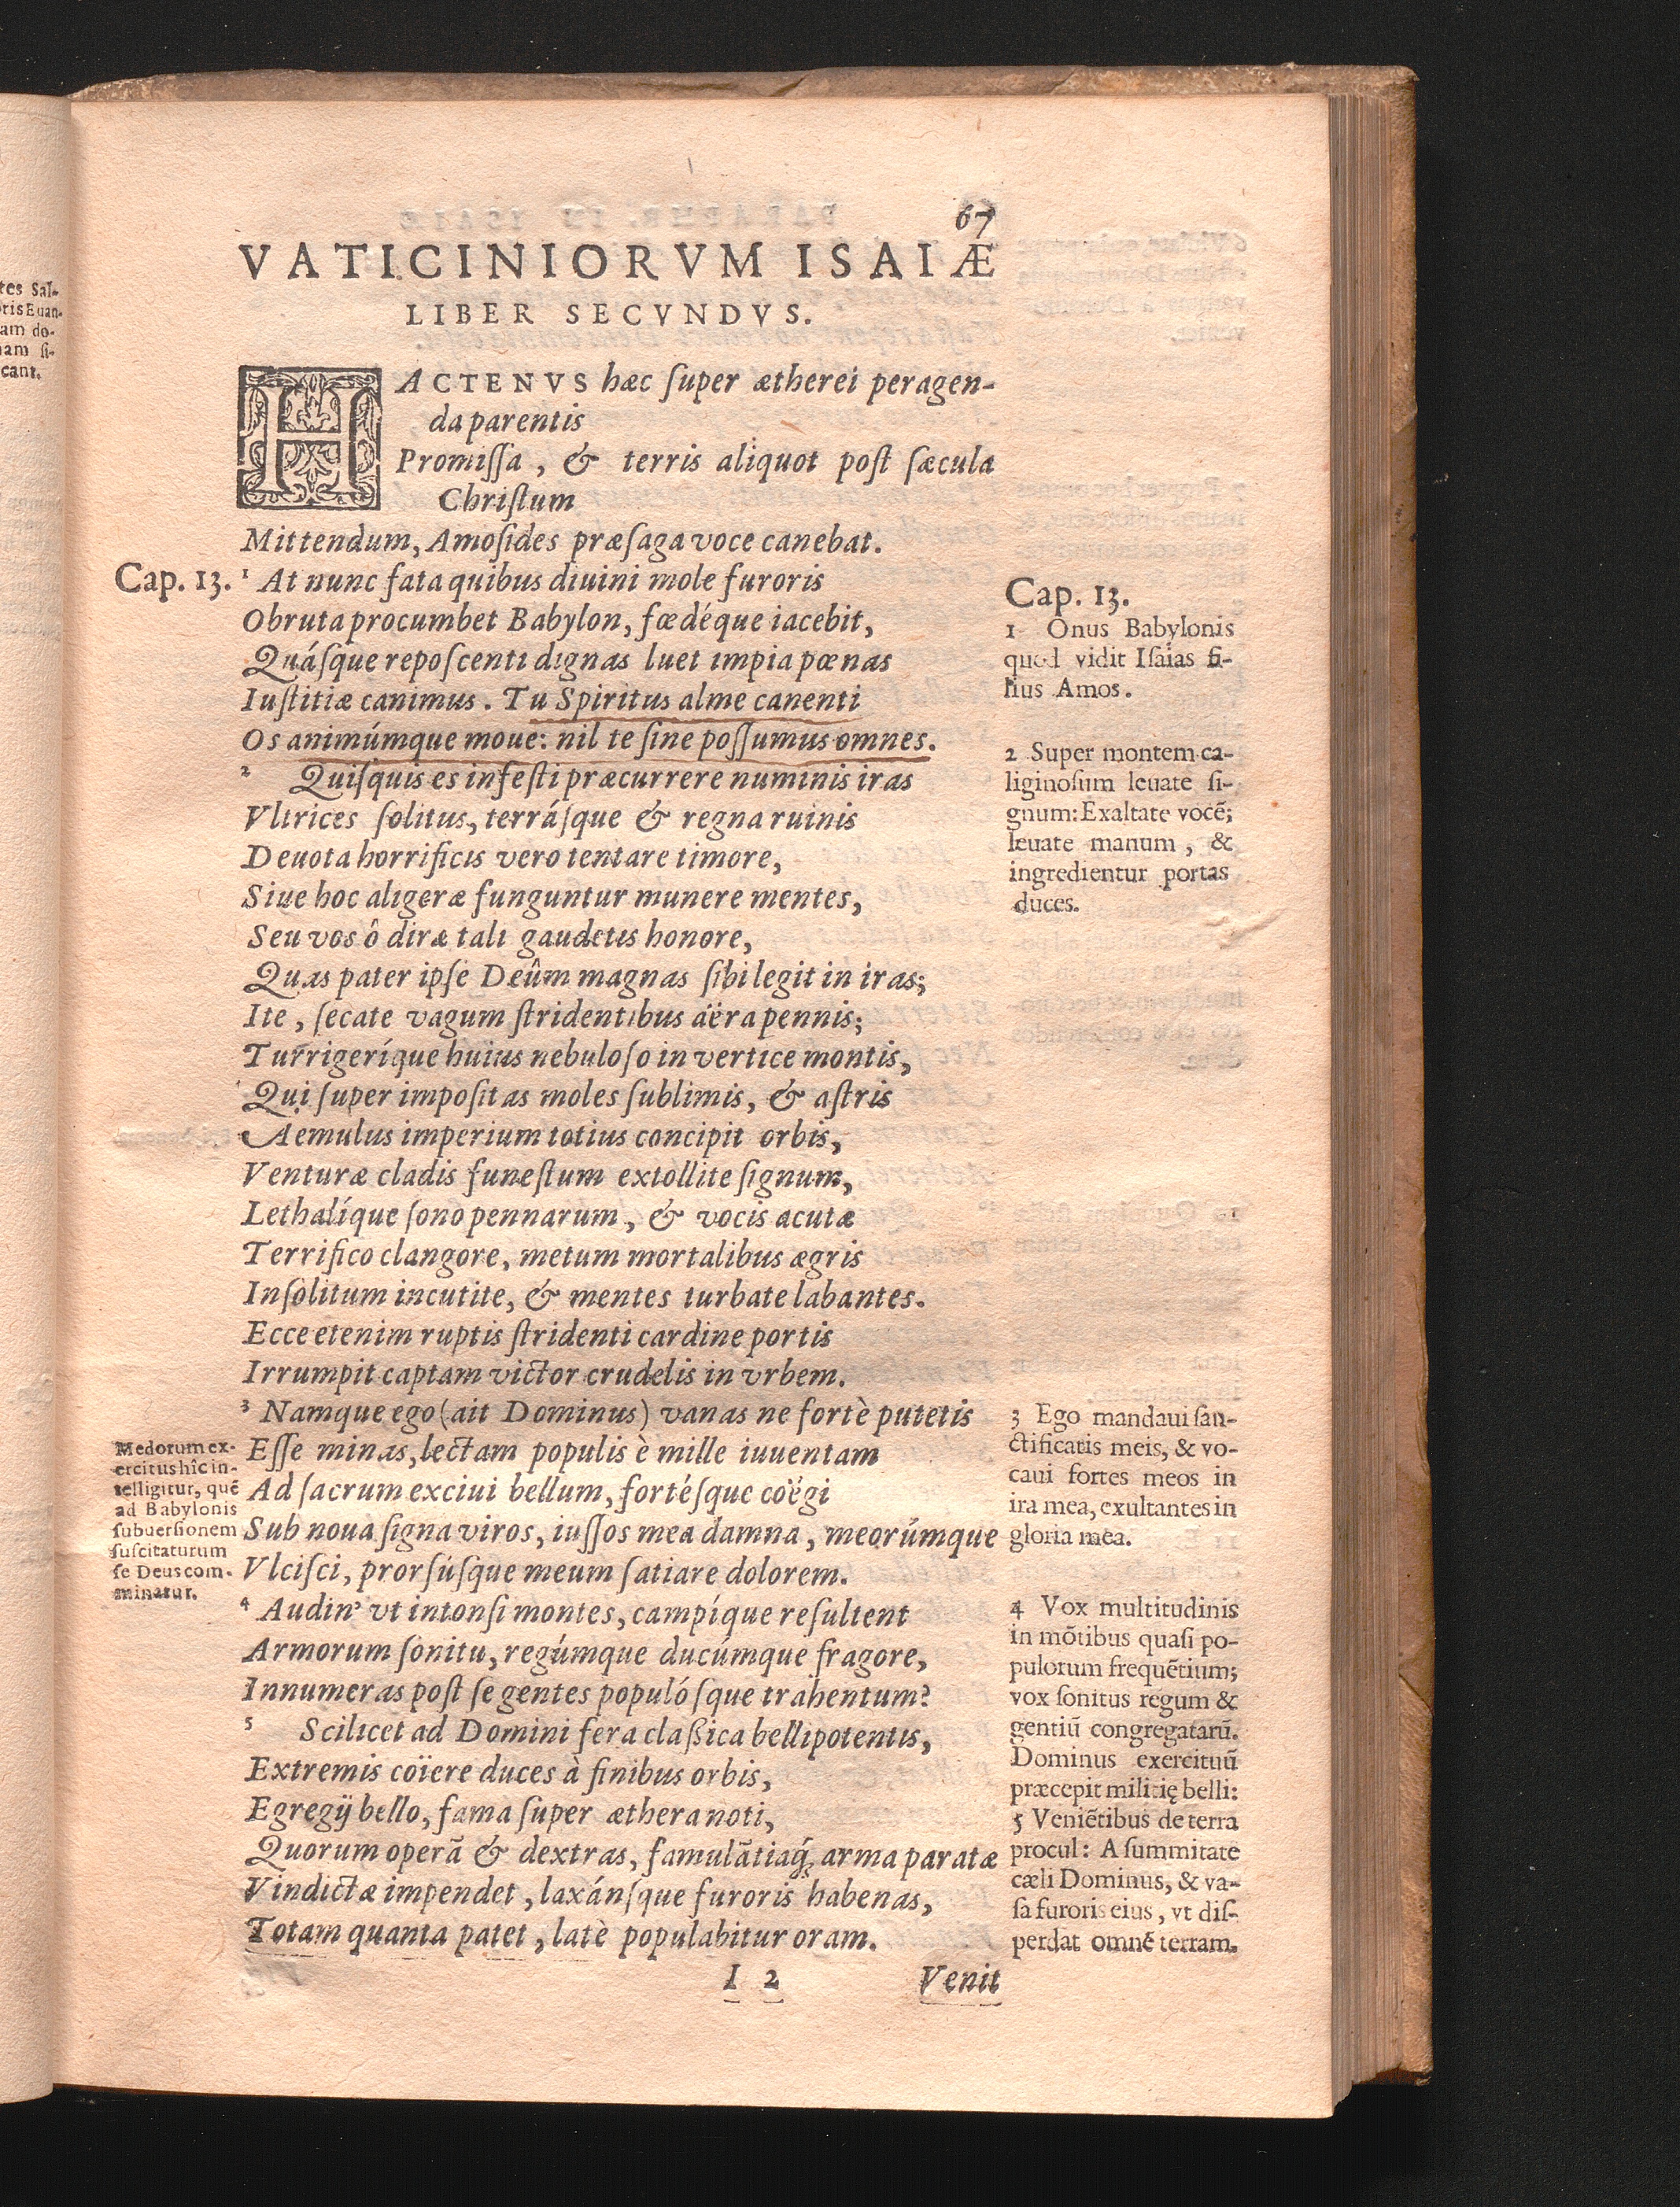 67
VATICINIORVM ISAIÆ
LIBER SECVNDVS.
HACTENVS hæc ſuper ætherei peragen-
da parentis
Promiſſa, & terris aliquot poſt ſæcula
Chriſtum
Mittendum, Amoſides præſaga voce canebat.
Cap. 13.
¹ At nunc fata quibus diuini mole furoris
Obruta procumbet Babylon, fœdéque iacebit,
Quáſque repoſcenti dignas luet impia pœnas
Iuſtitiæ canimus. Tu Spiritus alme canenti
Os animúmque moue: nil te ſine poſſumus omnes.
² Quiſquis es infeſti præcurrere numinis iras
Vltrices ſolitus, terráſque & regna ruinis
Deuota horrificis vero tentare timore,
Siue hoc aligeræ funguntur munere mentes,
Seu vos ô diræ tali gaudetis honore,
Quas pater ipſe Deûm magnas ſibi legit in iras;
Ite, ſecate vagum ſtridentibus äëra pennis;
Turrigeríque huius nebuloſo in vertice montis,
Qui ſuper impoſitas moles ſublimis, & aſtris
Aemulus imperium totius concipit orbis,
Venturæ cladis funeſtum extollite ſignum,
Lethalíque ſono pennarum, & vocis acutæ
Terrifico clangore, metum mortalibus ægris
Inſolitum incutite, & mentes turbate labantes.
Ecce etenim ruptis ſtridenti cardine portis
Irrumpit captam victor crudelis in vrbem.
³ Namque ego (ait Dominus) vanas ne fortè putetis
Eſſe minas, lectam populis è mille iuuentam
Ad ſacrum exciui bellum, fortéſque coëgi
Sub noua ſigna viros, iuſſos mea damna, meorúmque
Vlciſci, prorſúſque meum ſatiare dolorem.
⁴ Audin' vt intonſi montes, campíque reſultent
Armorum ſonitu, regúmque ducúmque fragore,
Innumeras poſt ſe gentes populóſque trahentum?
⁵ Scilicet ad Domini fera claßica bellipotentis,
Extremis coïere duces à finibus orbis,
Egregij bello, fama ſuper æthera noti,
Quorum operã & dextras, famulãtiaq́; arma paratæ
Vindictæ impendet, laxánſque furoris habenas,
Totam quanta patet, latè populabitur oram.
I 2
Venit
Medorum ex-
ercitus hîc in-
telligitur, quẽ
ad Babylonis
ſubuerſionem
ſuſcitaturum
ſe Deus com-
minatur.
Cap. 13.
1 Onus Babylonis
quod vidit Iſaias fi-
lius Amos.
2 Super montem ca-
liginoſum leuate ſi-
gnum: Exaltate vocẽ;
leuate manum, &
ingredientur portas
duces.
3 Ego mandaui ſan-
ctificatis meis, & vo-
caui fortes meos in
ira mea, exultantes in
gloria mea.
4 Vox multitudinis
in mõtibus quaſi po-
pulorum frequẽtium;
vox ſonitus regum &
gentiũ congregatarũ.
Dominus exercituũ
præcepit militię belli:
5 Veniẽtibus de terra
procul: A ſummitate
cæli Dominus, & va-
ſa furoris eius, vt diſ-
perdat omnẽ terram.
tes Sal-
oris Euan-
am do-
nam ſi-
cant.